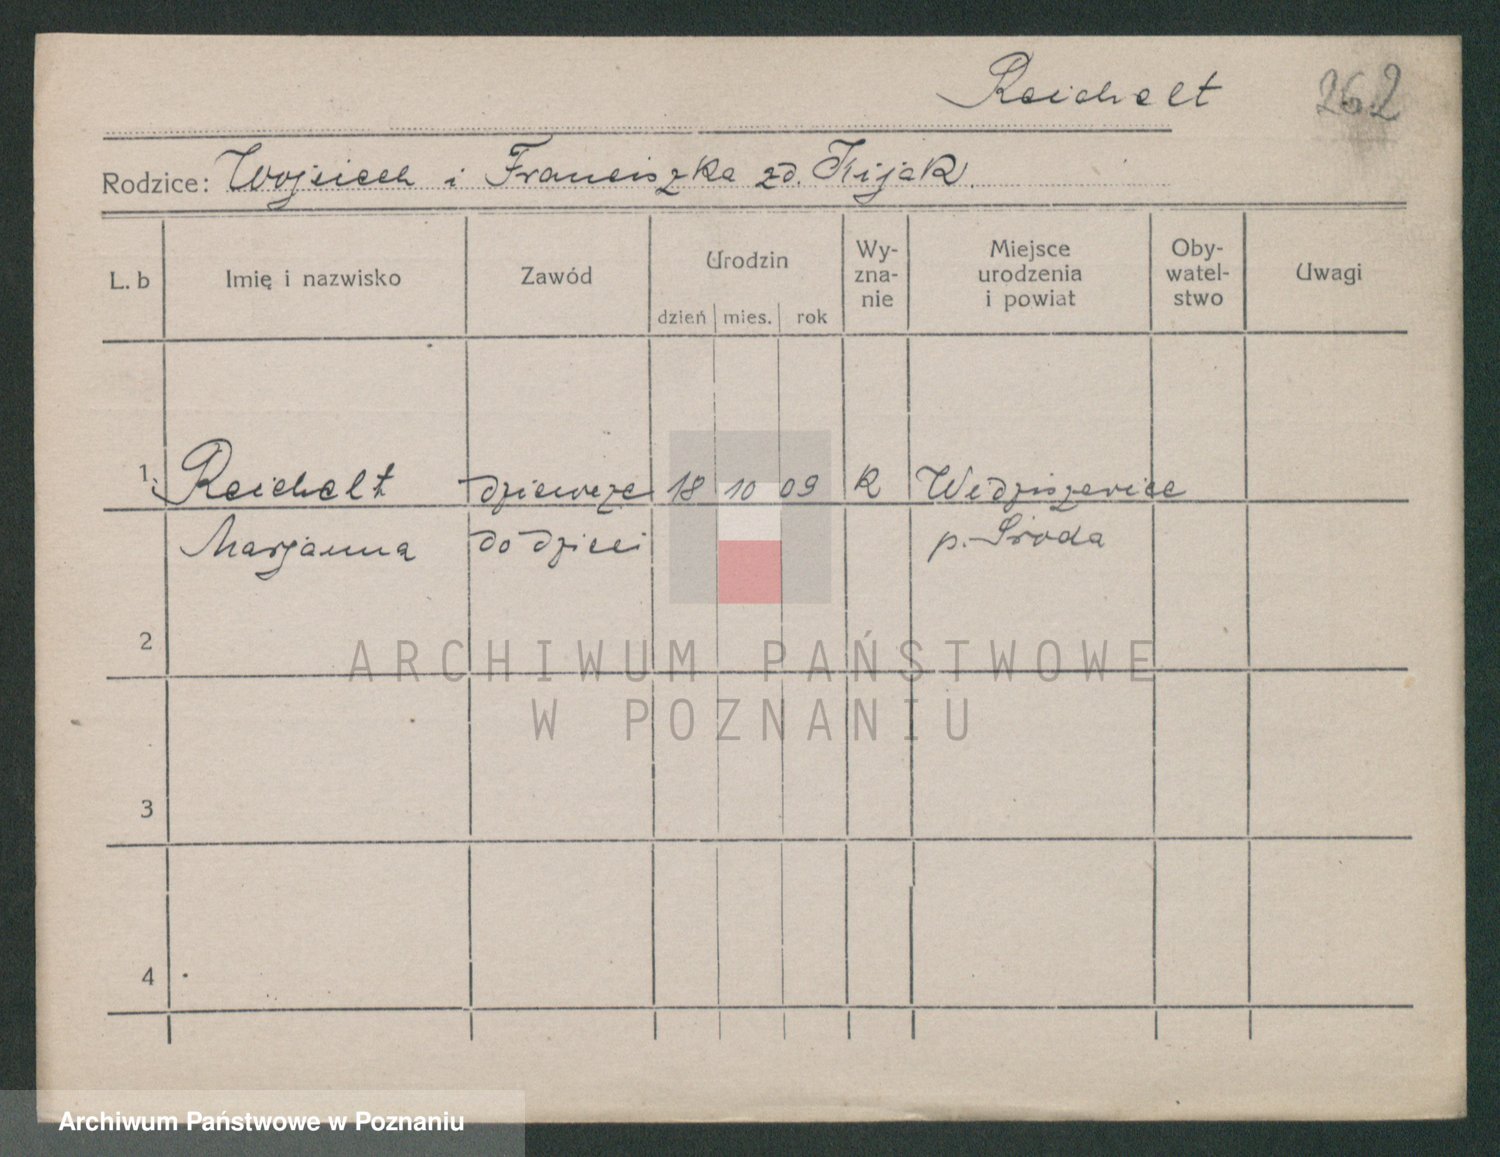 Reichelt
262
Rodzice: Wojciech i Franciszka zd. Kijak.
L. b
Imię i nazwisko
Zawód
Urodzin
dzień mies. rok
Wy-
zna-
nie
Miejsce
urodzenia
i powiat
Oby-
watel-
stwo
Uwagi
1. Reichelt dziewczę 18 10 09 R
Marjanna do dzieci p. Środa
2
3
4
ARCHIWUM PAŃSTWOWE
W POZNANIU
Archiwum Państwowe w Poznaniu